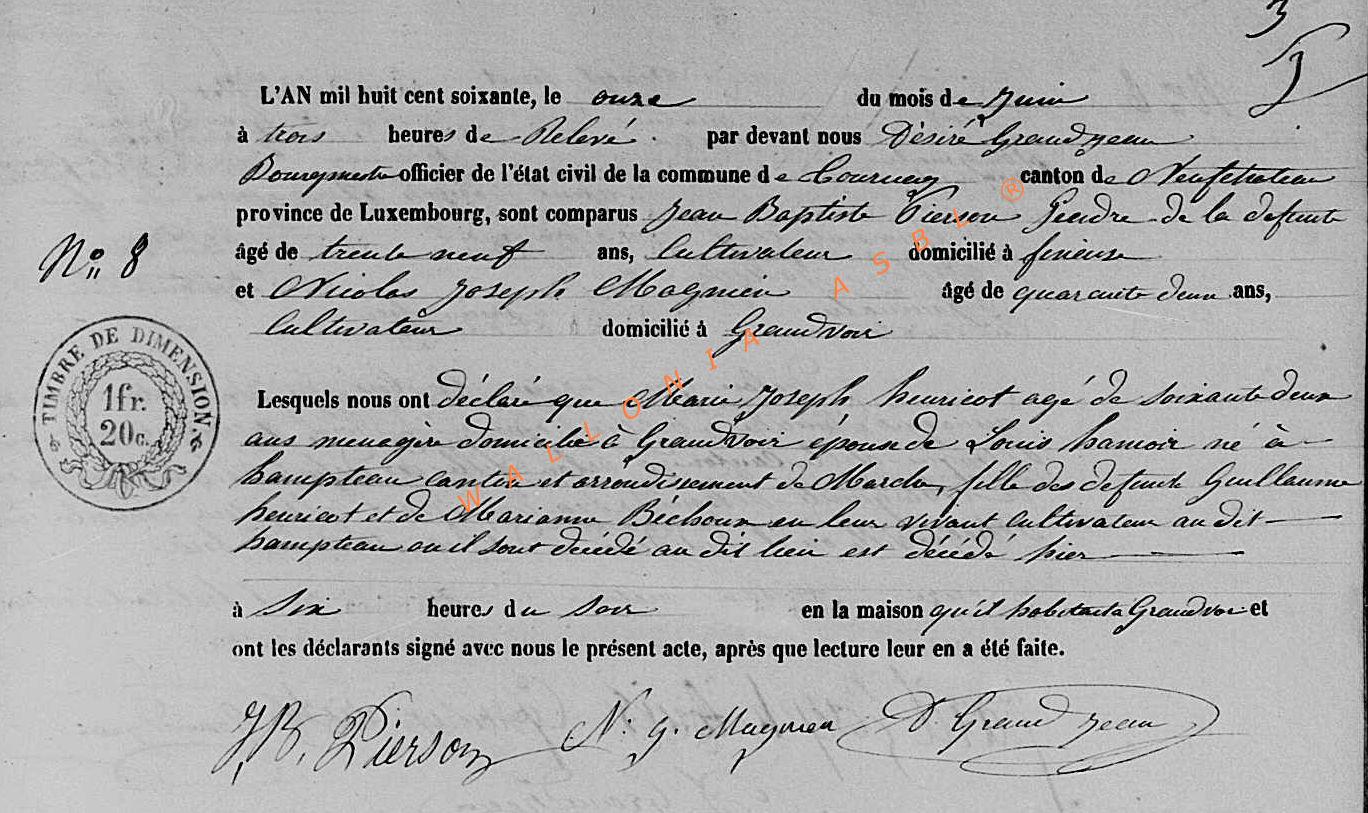 3
5
L'AN mil huit cent soixante, le onze du mois de Juin
à trois heures de Relevé. par devant nous Désiré Grandjean
Bourgmestre officier de l'état civil de la commune de Tournay canton de Neufchateau
province de Luxembourg, sont comparus Jean Baptiste Pierson Gendre de la defunte
N° 8
âgé de trente neuf ans, Cultivateur domicilié à fineuse
et Nicolas Joseph Magnien âgé de quarante deux ans,
Cultivateur domicilié à Grandvoir
TIMBRE DE DIMENSION.
1fr.
20c.
Lesquels nous ont déclaré que Marie Joseph henricot agé de soixante deux
ans menagère domicilié à Grandvoir épouse de Louis hamoir né à
hampteau canton et arrondissement de Marche, fille des defunts Guillaume
henricot et de Marianne Béchoux en leur vivant cultivateur au dit
hampteau ou il sont décédé au dit lieu est décédé hier
à Six heures du Soir en la maison qu'il habitait a Grandvoir et
ont les déclarants signé avec nous le présent acte, après que lecture leur en a été faite.
J. B. Pierson N. J. Magnien D Grandjean
WALLONIA ASBL ®